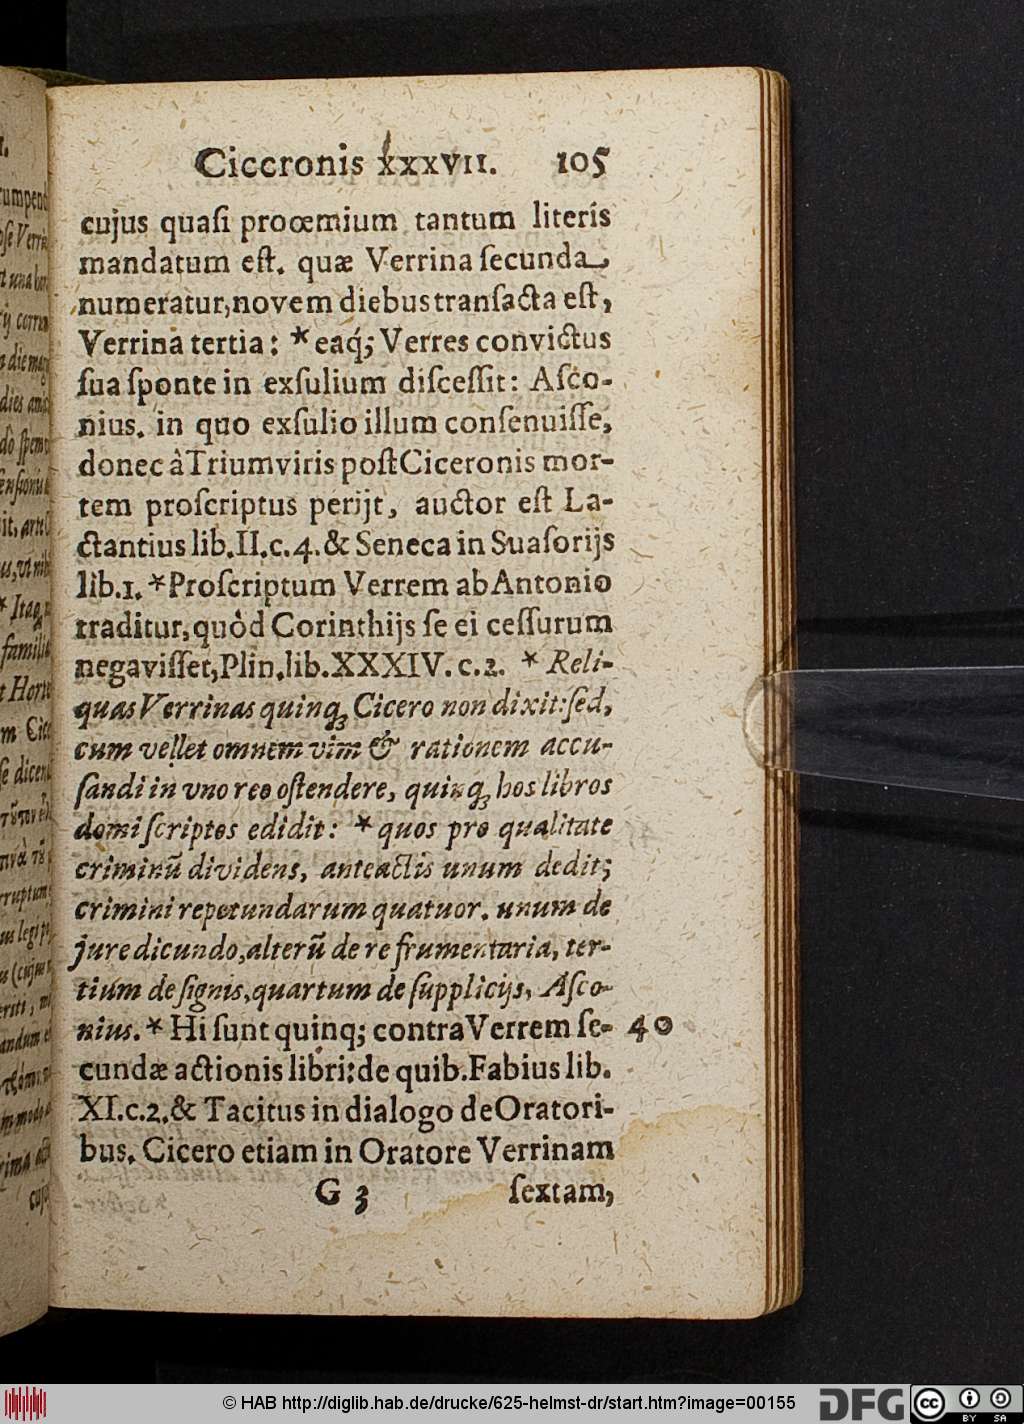 Ciceronis XXXVII. 105
cujus quasi proœmium tantum literis
mandatum est. quæ Verrina secunda
numeratur, novem diebus transacta est,
Verrina tertia: * eaq́; Verres convictus
sua sponte in exsulium discessit: Asco-
nius. in quo exsulio illum consenuisse,
donec à Triumviris post Ciceronis mor-
tem proscriptus perijt, auctor est La-
ctantius lib. II. c. 4. & Seneca in Suasorijs
lib. 1. * Proscriptum Verrem ab Antonio
traditur, quòd Corinthijs se ei cessurum
negavisset, Plin. lib. XXXIV. c. 2. * Reli-
quas Verrinas quinq; Cicero non dixit: sed,
cum vellet omnem vim & rationem accu-
sandi in uno reo ostendere, quinq; hos libros
domi scriptos edidit: * quos pro qualitate
criminũ dividens, anteactis unum dedit;
crimini repetundarum quatuor. unum de
jure dicundo, alterũ de re frumentaria, ter-
tium de signis, quartum de supplicijs, Asco-
nius. * Hi sunt quinq; contra Verrem se- 40
cundæ actionis libri: de quib. Fabius lib.
XI. c. 2. & Tacitus in dialogo de Oratori-
bus. Cicero etiam in Oratore Verrinam
G 3 sextam,
© HAB http://diglib.hab.de/drucke/625-helmst-dr/start.htm?image=00155
DFG
cc BY SA